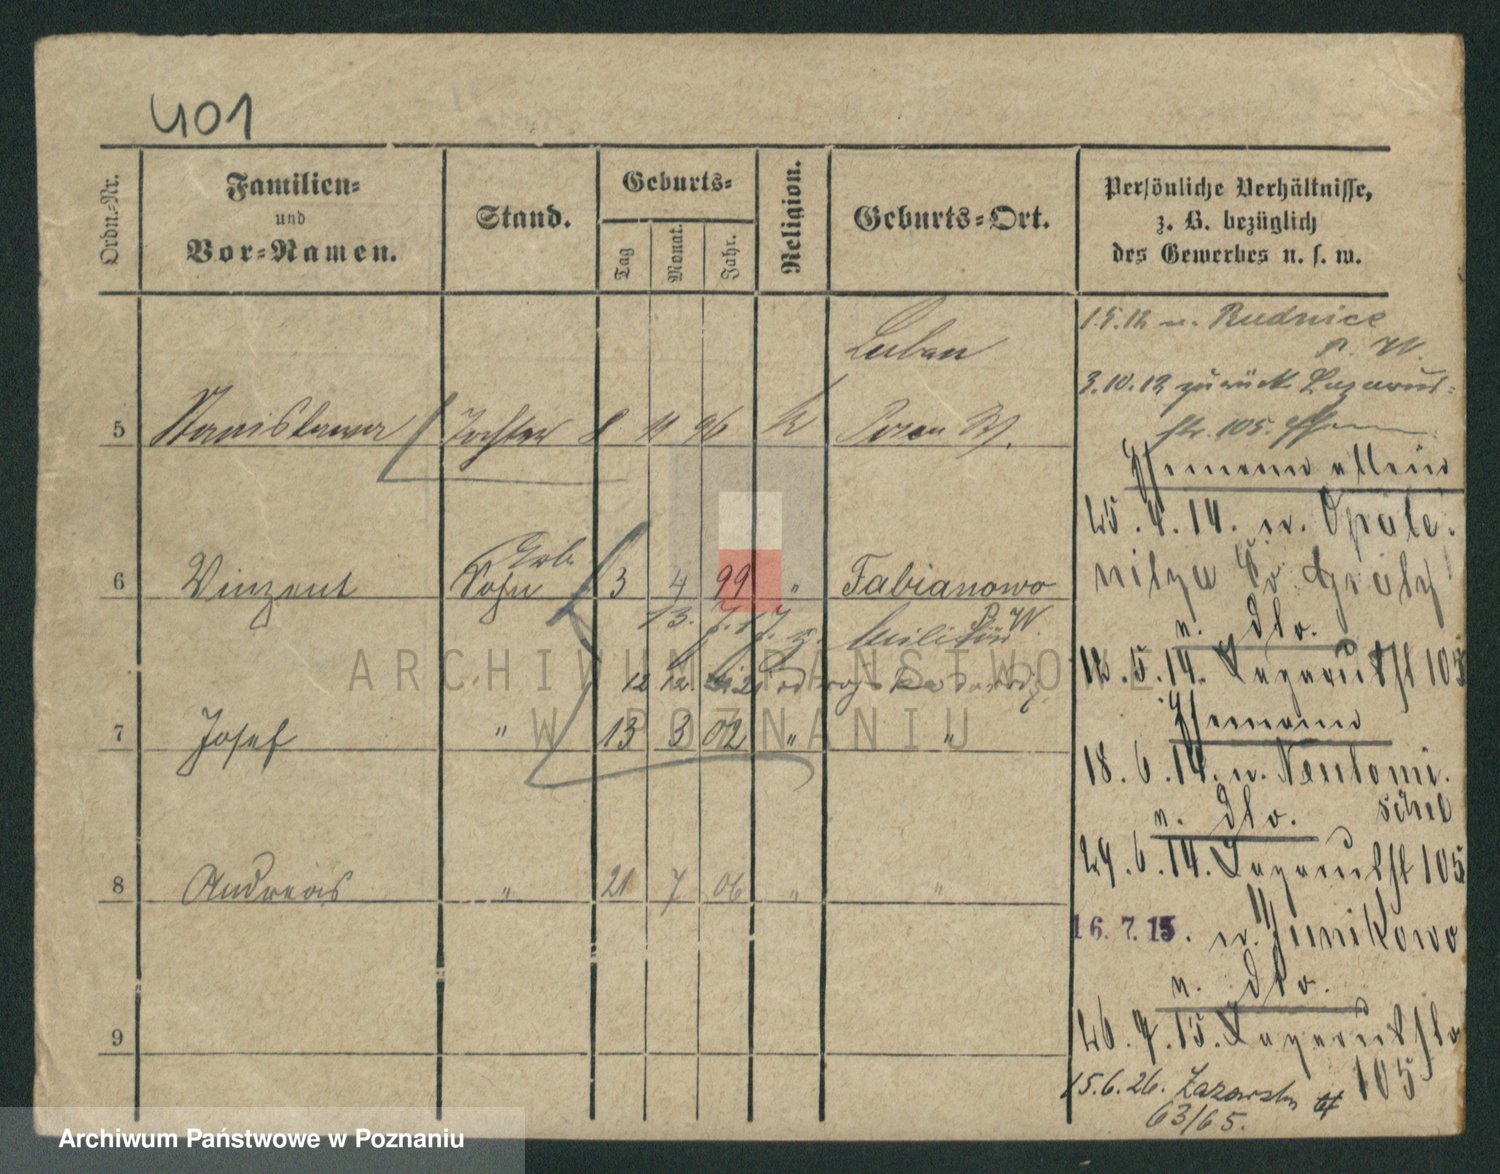 401
Ordn.-Nr.
Familien-
und
Vor-Namen.
Stand.
Geburts-
Tag
Monat.
Jahr.
Religion.
Geburts-Ort.
Persönliche Verhältnisse,
z. B. bezüglich
des Gewerbes u. s. w.
Luban
5 Stanisława Tochter 8 11 96 k Posen W.
Arb.
6 Vinzent Sohn 3 4 99 " Fabianowo
P. W.
13. 7. 17. z. Militär
12 12. 21 od wojska
7 Josef " 13 3 02 " "
8 Andreas " 21 7 06 " "
9
1.5.12 n. Rudnice
P. W.
3.10.12 zurück Lazarus-
str. 105.
Ehemann allein
25.4.14. n. Opale-
nitza Kr. Grätz
n. dto.
12.5.14. Lazarusstr 105
Ehemann
18.6.14. n. Neutomi-
schel
n. dto.
29.6.14. Lazarusstr 105
16.7.15. n. Junikowo
n. dto.
26.7.15. Lazarusstr
105
15.6.26. Łazarska
63/65.
ARCHIWUM PAŃSTWOWE
W POZNANIU
Archiwum Państwowe w Poznaniu